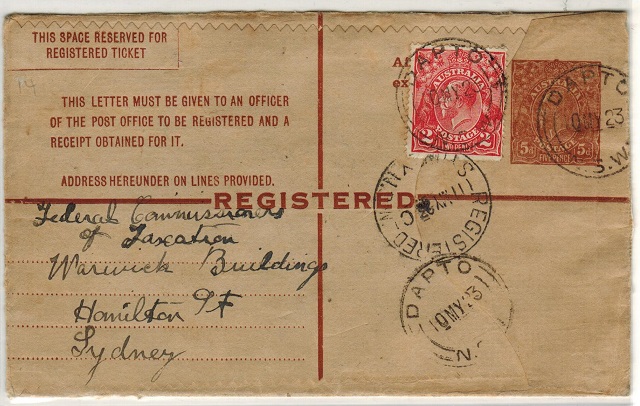 THIS SPACE RESERVED FOR
REGISTERED TICKET
14
THIS LETTER MUST BE GIVEN TO AN OFFICER
OF THE POST OFFICE TO BE REGISTERED AND A
RECEIPT OBTAINED FOR IT.
ADDRESS HEREUNDER ON LINES PROVIDED.
REGISTERED
Federal Commissioners
of Taxation
Warwick Buildings
Hamilton St
Sydney
AUSTRALIA
2 POSTAGE 2
TWO PENCE
DAPTO
5D POSTAGE 5D
FIVE PENCE
DAPTO
10 MY 23
N.S.W
REGISTERED
SYDNEY
11 MY
DAPTO
10 MY 23
N.S